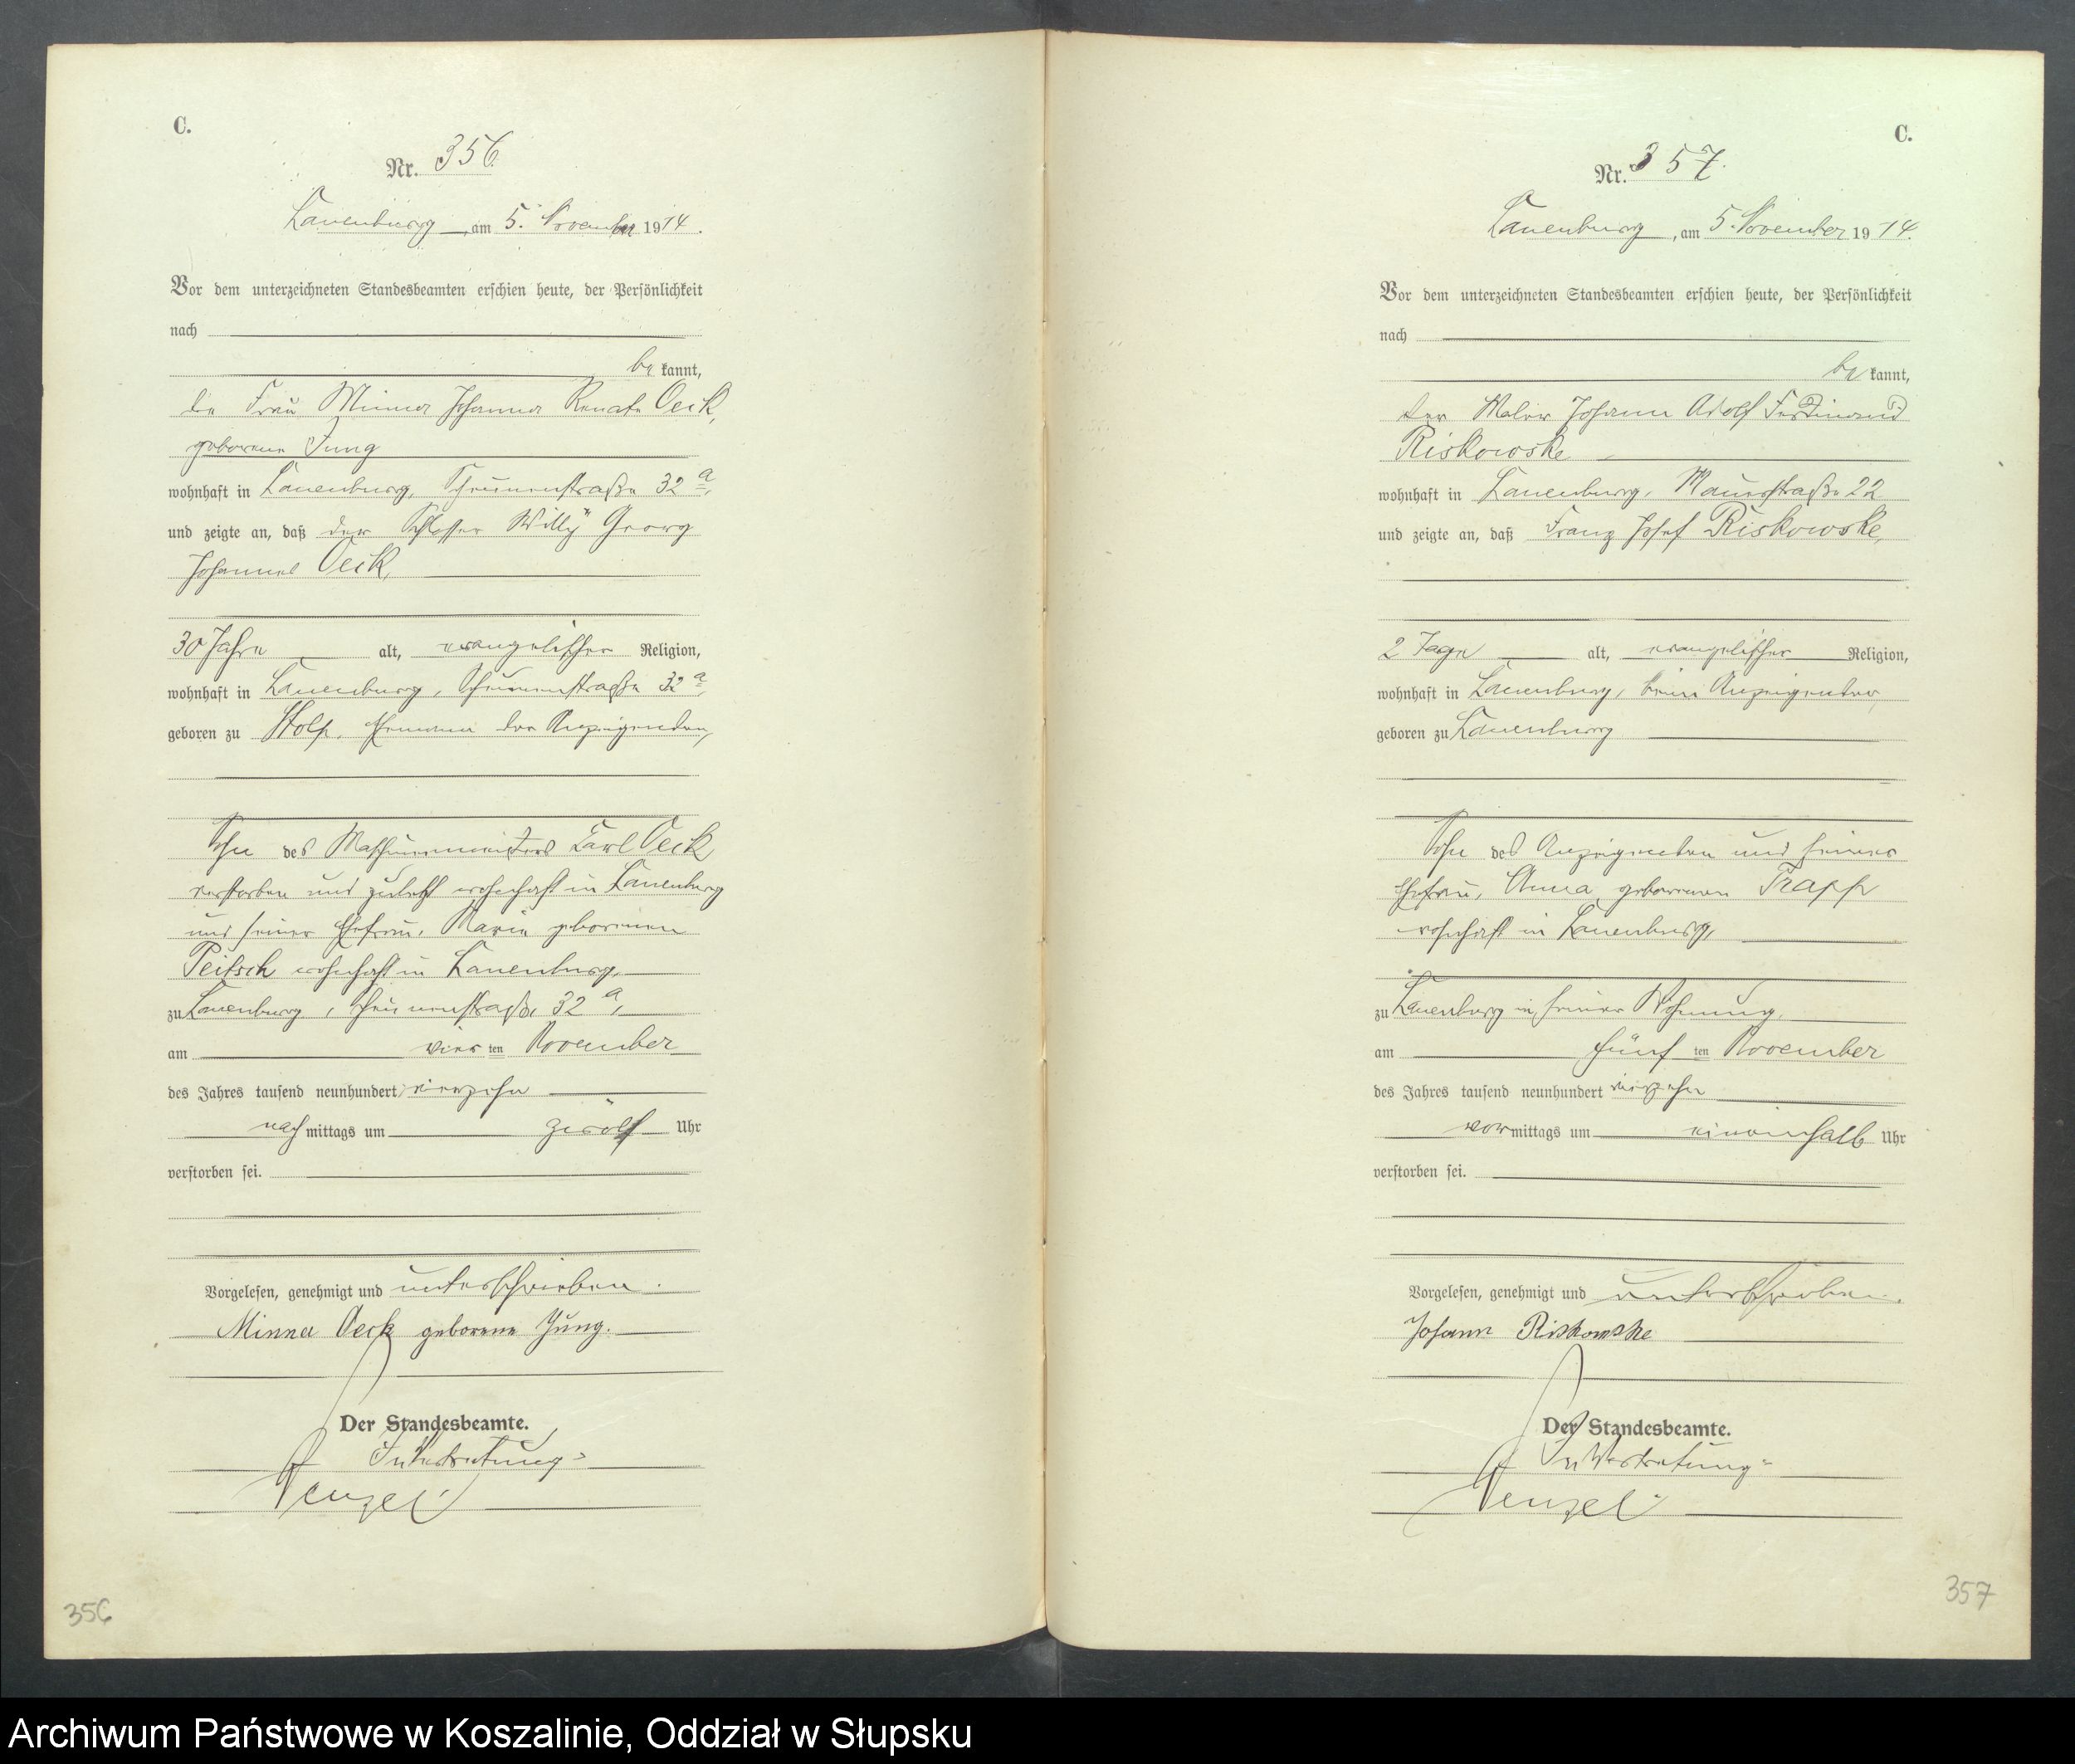 C.
Nr. 356.
Lauenburg, am 5. November 1914.
Vor dem unterzeichneten Standesbeamten erschien heute, der Persönlichkeit
nach
bekannt,
die Frau Minna Johanna Renate Oeck,
geborene Jung
wohnhaft in Lauenburg, Scheunenstraße 32 a,
und zeigte an, daß der Schlosser Willy Georg
Johannes Oeck,
30 Jahre alt, evangelischer Religion,
wohnhaft in Lauenburg, Scheunenstraße 32 a,
geboren zu Stolp, Ehemann der Anzeigenden,
Sohn des Maschinenmeisters Carl Oeck
verstorben und zuletzt wohnhaft in Lauenburg
und seiner Ehefrau, Marie geborenen
Peitsch wohnhaft in Lauenburg,
zu Lauenburg, Scheunenstraße 32 a,
am vierten November
des Jahres tausend neunhundert vierzehn
nachmittags um zwölf Uhr
verstorben sei.
Vorgelesen, genehmigt und unterschrieben.
Minna Oeck geborene Jung.
Der Standesbeamte.
In Vertretung:
Wenzel
356
C.
Nr. 357.
Lauenburg, am 5. November 1914.
Vor dem unterzeichneten Standesbeamten erschien heute, der Persönlichkeit
nach
bekannt,
der Maler Johann Adolf Ferdinand
Riskowske
wohnhaft in Lauenburg, Mauerstraße 22
und zeigte an, daß Franz Josef Riskowske,
2 Tage alt, evangelischer Religion,
wohnhaft in Lauenburg, beim Anzeigenden,
geboren zu Lauenburg
Sohn des Anzeigenden und seiner
Ehefrau, Anna geborenen Trapp
wohnhaft in Lauenburg,
zu Lauenburg in seiner Wohnung,
am fünften November
des Jahres tausend neunhundert vierzehn
vormittags um eineinhalb Uhr
verstorben sei.
Vorgelesen, genehmigt und unterschrieben.
Johann Riskowske
Der Standesbeamte.
In Vertretung:
Wenzel
357
Archiwum Państwowe w Koszalinie, Oddział w Słupsku